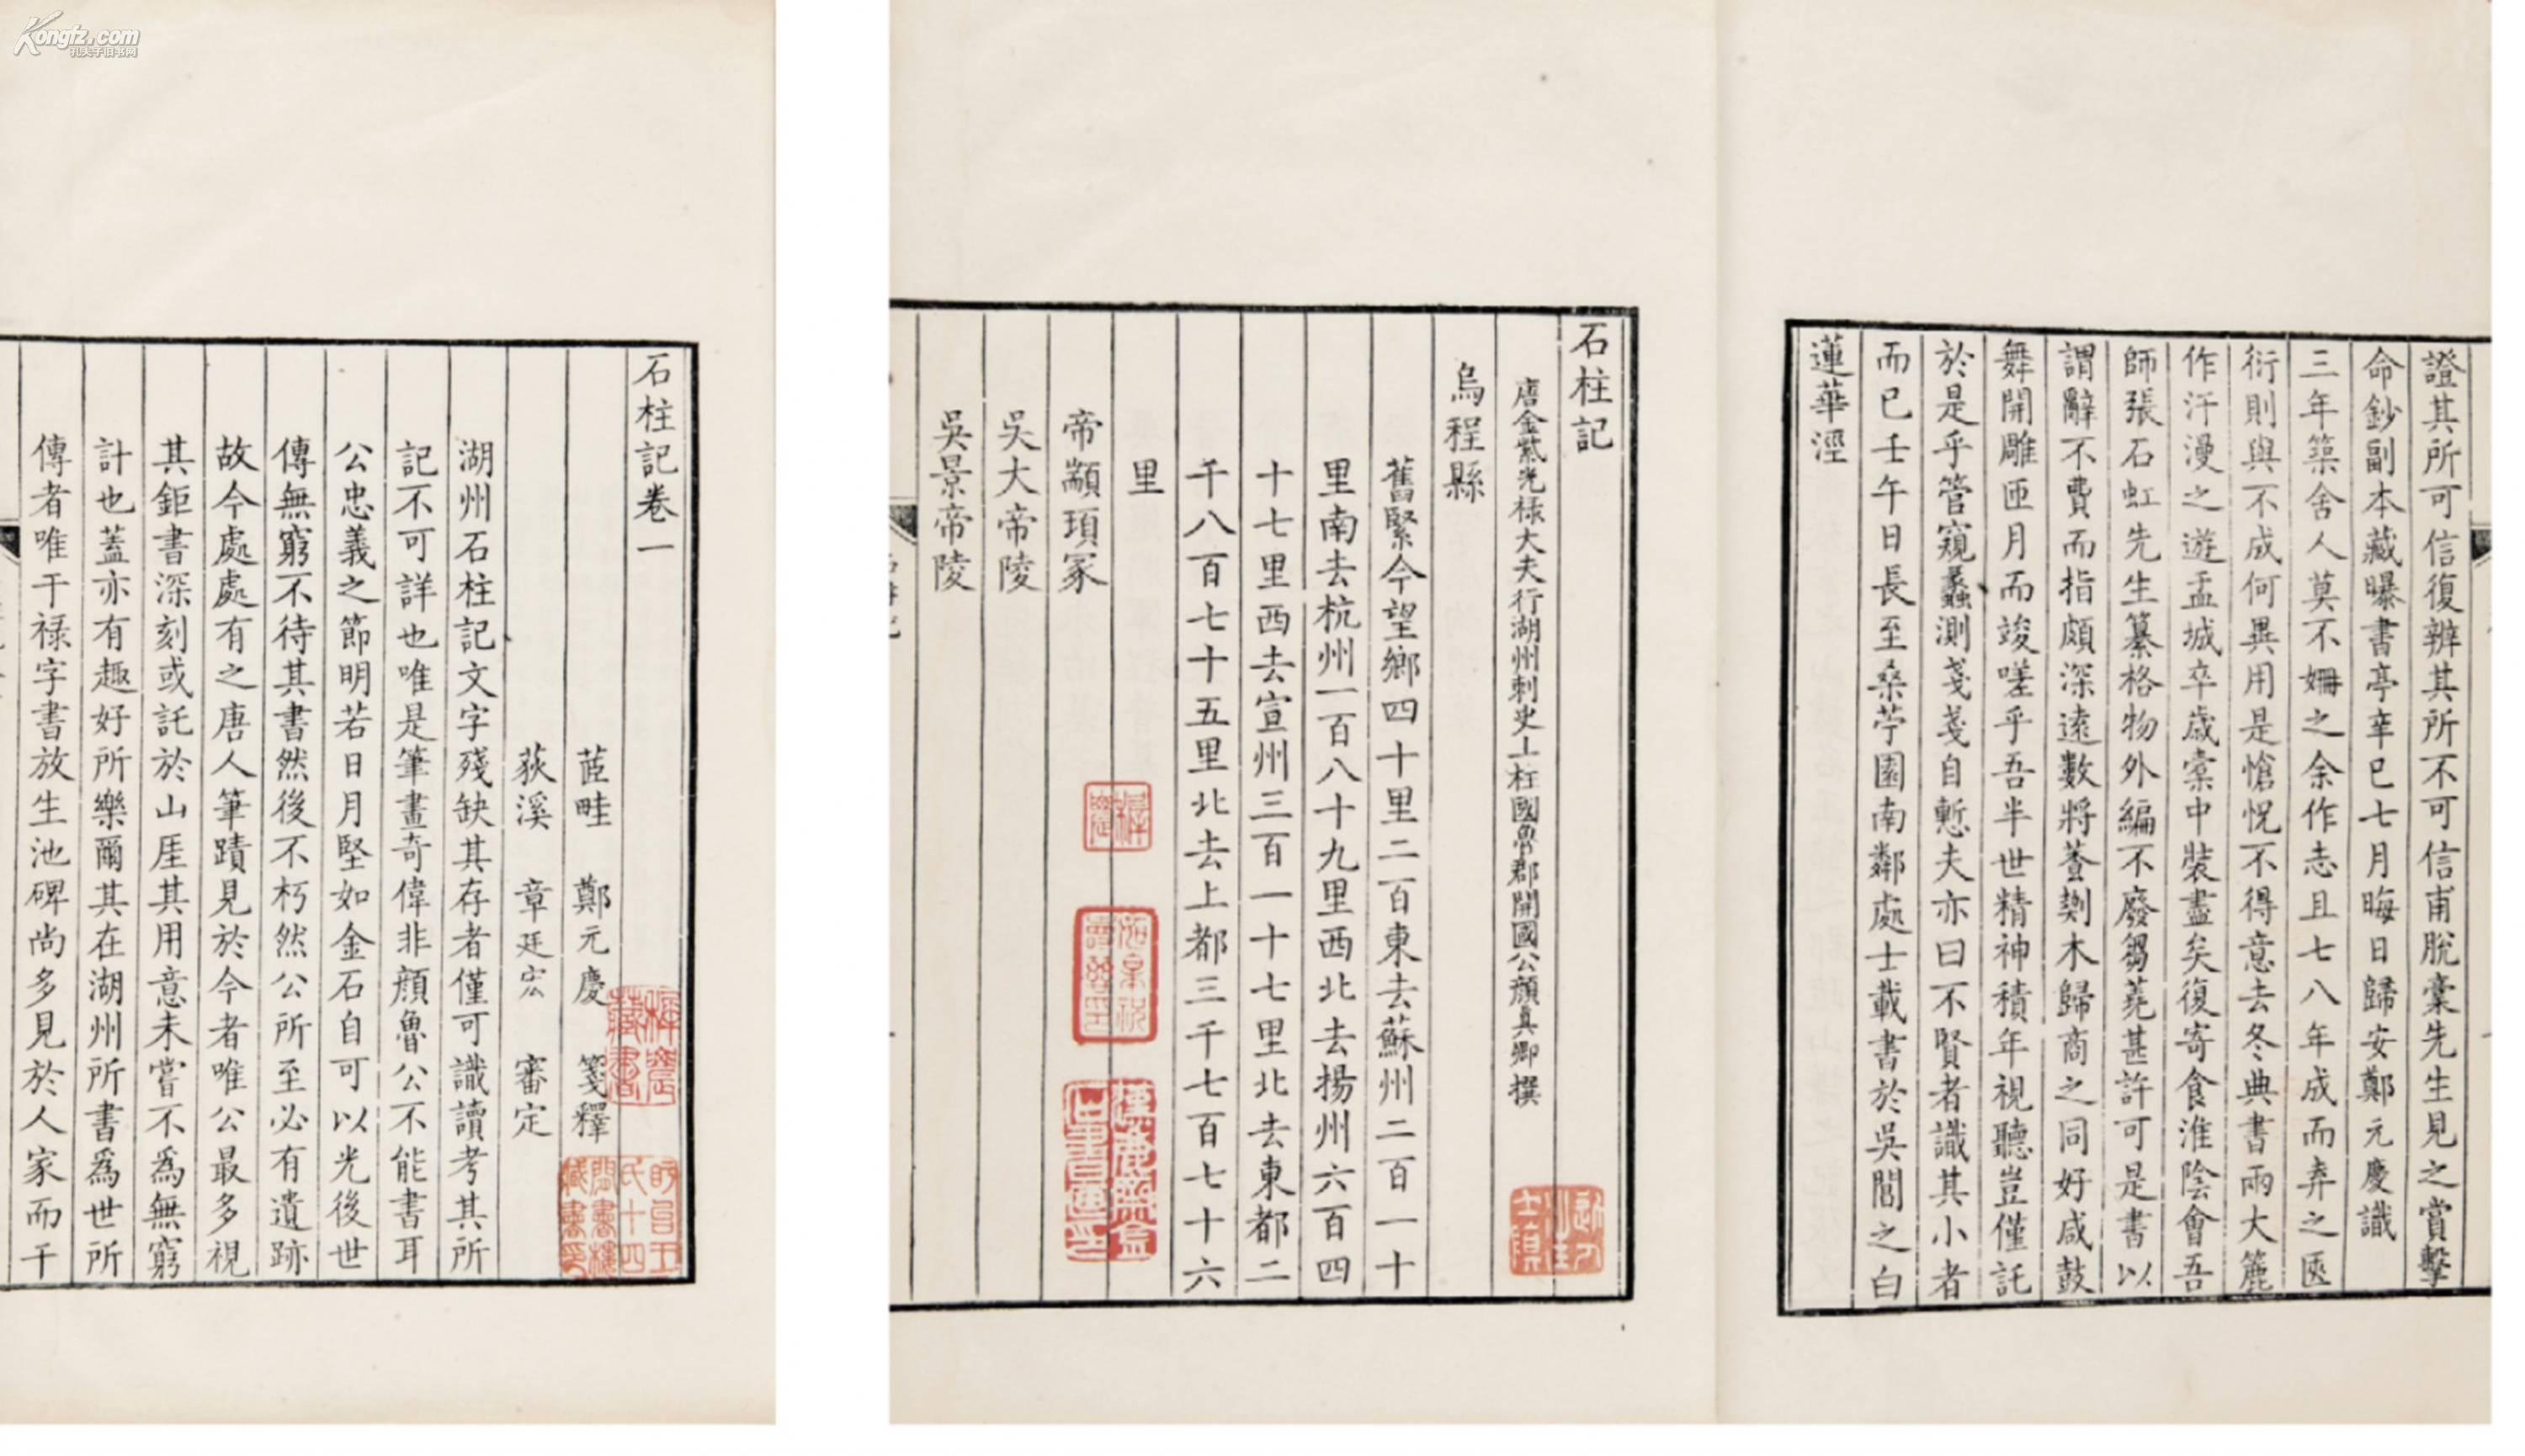 證其所可信復辨其所不可信甫脫稾先生見之賞擊
命鈔副本藏曝書亭辛巳七月晦日歸安鄭元慶識
三年築舍人莫不姍之余作志且七八年成而弃之匧
衍則與不成何異用是愴怳不得意去冬典書兩大簏
作汗漫之遊盂城卒歲橐中裝盡矣復寄食淮陰會吾
師張石虹先生纂格物外編不廢芻蕘甚許可是書以
謂辭不費而指頗深遠數將蓌剞木歸商之同好咸鼓
舞開雕匝月而竣嗟乎吾半世精神積年視聽豈僅託
於是乎管窺蠡測戔戔自慙夫亦曰不賢者識其小者
而已壬午日長至桑苧園南鄰處士載書於吳閶之白
蓮華涇
石柱記
唐金紫光祿大夫行湖州刺史上柱國魯郡開國公顏真卿撰
烏程縣
舊緊今望鄉四十里二百東去蘇州二百一十
里南去杭州一百八十九里西北去揚州六百四
十七里西去宣州三百一十七里北去東都二
千八百七十五里北去上都三千七百七十六
里
帝顓頊冢
吳大帝陵
吳景帝陵
石柱記卷一
茝畦 鄭元慶 箋釋
荻溪 章廷宏 審定
湖州石柱記文字殘缺其存者僅可識讀考其所
記不可詳也唯是筆畫奇偉非顏魯公不能書耳
公忠義之節明若日月堅如金石自可以光後世
傳無窮不待其書然後不朽然公所至必有遺跡
故今處處有之唐人筆蹟見於今者唯公最多視
其鉅書深刻或託於山厓其用意未嘗不為無窮
計也蓋亦有趣好所樂爾其在湖州所書為世所
傳者唯干祿字書放生池碑尚多見於人家而干
Kongfz.com
孔夫子旧书网